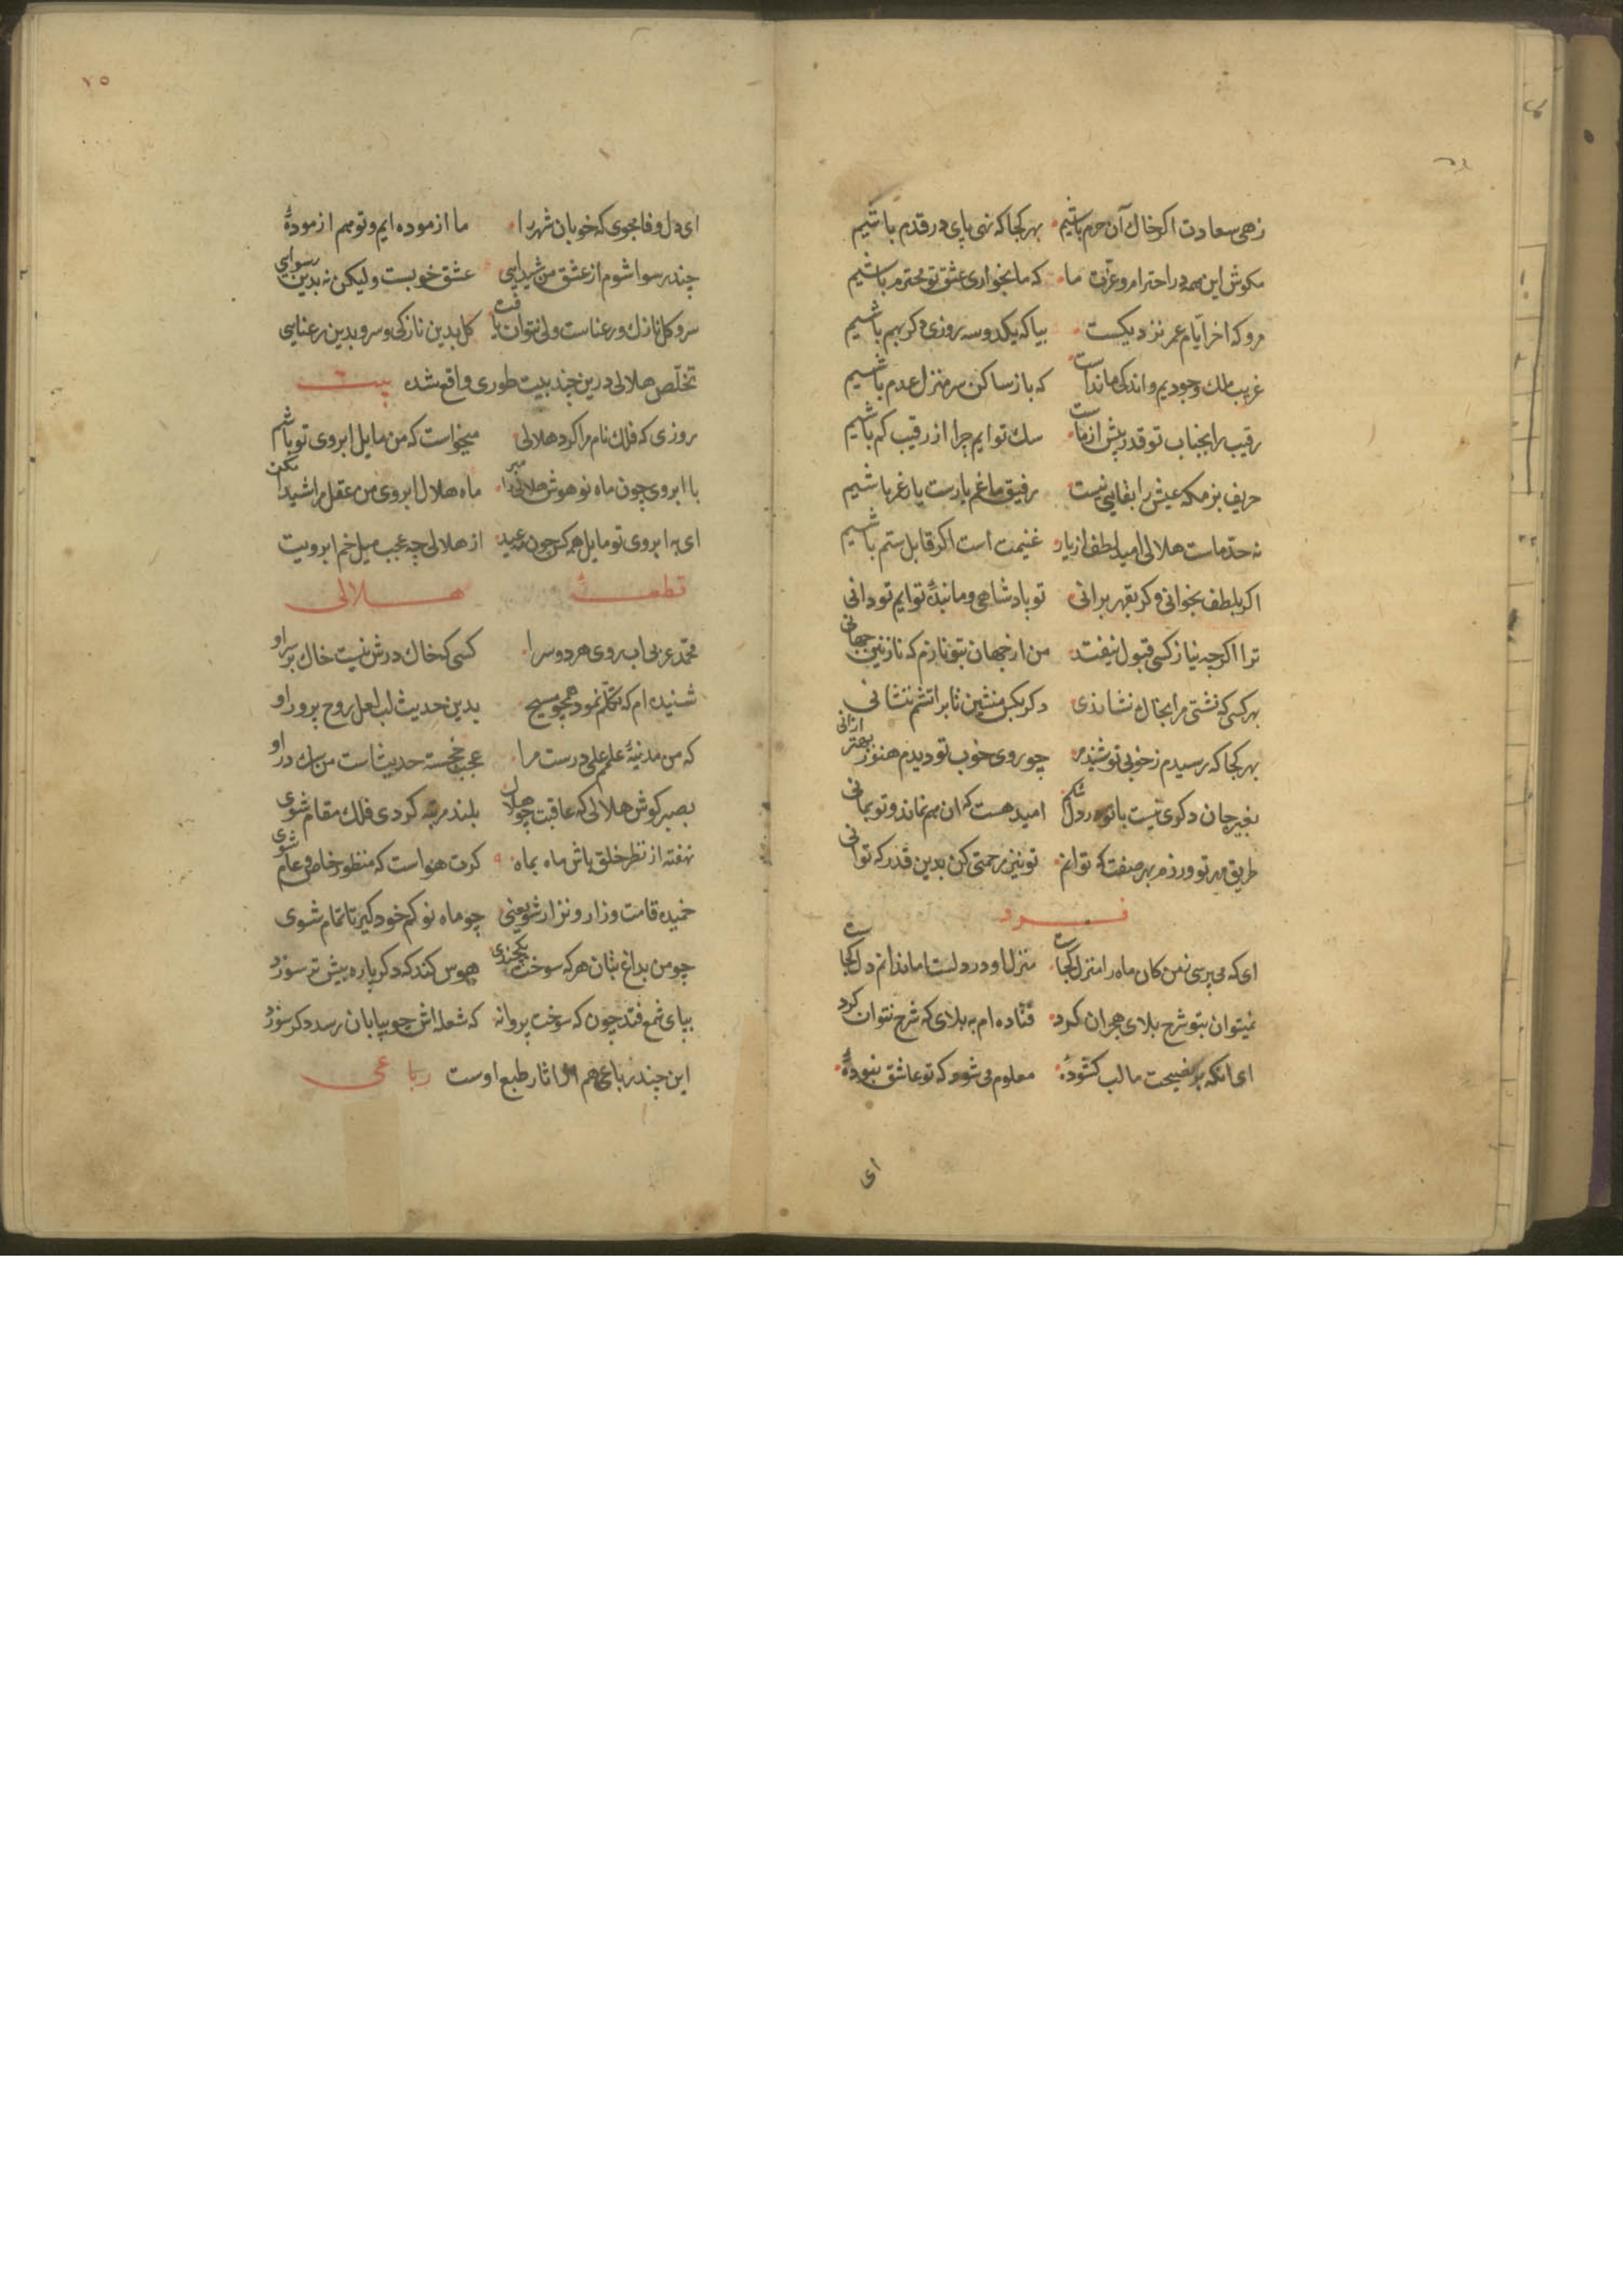 زهی سعادت اکر خاك آن حرم باشیم بهر کجا که نهی پای در قدم باشیم
مکوش این همه در احترام و عزّت ما که ما بخواری عشق تو محترم باشیم
مرو که اخر ایّام عمر نزدیکست بیا که یکدوسه روزی دکر بهم باشیم
غریب ملك وجودیم و اندکی ماندست که باز ساکن سرمنزل عدم باشیم
رقیب را بجناب تو قدر پیش از ماست سك توایم چرا از رقیب کم باشیم
حریف بزمکه عیش را بقایی نیست رفیق ما غم یارست یار غم باشیم
نه حدّ ماست هلالی امید لطف از یار غنیمت است اکر قابل ستم باشیم
اکر بلطف بخوانی وکر بقهر برانی تو پادشاهی و ما بندهٔ توایم تو دانی
ترا اکرچه نیاز کسی قبول نیفتد من از جهان بتو نازم که نازنین جهانی
بهر کسی که نشتی مرا بخاك نشاندی دکر بکس منشین تا بر اتشم ننشانی
بهر کجا که رسیدم ز خوبی تو شنیدم چو روی خوب تو دیدم هنوز بهتر ازانی
بغیر جان دکری نیست با تو در دل تنکم امید هست که ان هم نماند و تو بمانی
طریق مهر تو ورزم بهر صفت که توانم تو نیز مرحمتی کن بدین قدر که توانی
فرد
ای که می پرسی ز من کان ماه را منزل کجاست منزل او در دلست اما ندانم دل کجاست
نمیتوان بتو شرح بلای هجران کرد فتاده ام به بلای که شرح نتوان کرد
ای انکه بر نصیحت ما لب کشودهٔ معلوم می شود که تو عاشق نبودهٔ
ای
٧٥
ای دل وفا مجوی که خوبان شهر را ما ازموده ایم و تو هم ازمودهٔ
چند رسوا شوم از عشق من شیدایی عشق خوبست ولیکن نه بدین رسوایی
سرو کل نازك و رعناست ولی نتوان کفت کل بدین نازکی و سرو بدین رعنایی
تخلّص هلالی درین چند بیت طوری واقع شده بیت
روزی که فلك نام مرا کرد هلالی میخواست که من مایل ابروی تو باشم
با ابروی چون ماه نو هوش هلالی را مبر ماه هلال ابروی من عقل مرا شیدا مکن
ای به ابروی تو مایل همه کس چون مه عید از هلالی چه عجب میل خم ابرویت
قطعهٔ هلالی
محمّد عربی اب روی هر دو سرا کسی که خاك درش نیست خاك بر سر او
شنیده ام که تکلّم نمود همچو مسیح بدین حدیث لب لعل روح پرور او
که من مدینهٔ علمم علی درست مرا عجب خجسته حدیثاست من سك در او
بصبر کوش هلالی که عاقبت چو هلال بلند مرتبه کردی فلك مقام شوی
نهفته از نظر خلق باش ماه بماه کرت هواست که منظور خاص و عام شوی
خمیده قامت و زار و نزار شو یعنی چو ماه نو کم خود کیر تا تمام شوی
چو من بداغ بتان هر که سوخت یکچندی هوس کند که دکر باره بیش تر سوزد
بپای شمع فتد چون که سوخت پروانه که شعله اش چو بپایان رسد دکر سوزد
این چند رباعی هم از اثار طبع اوست رباعی